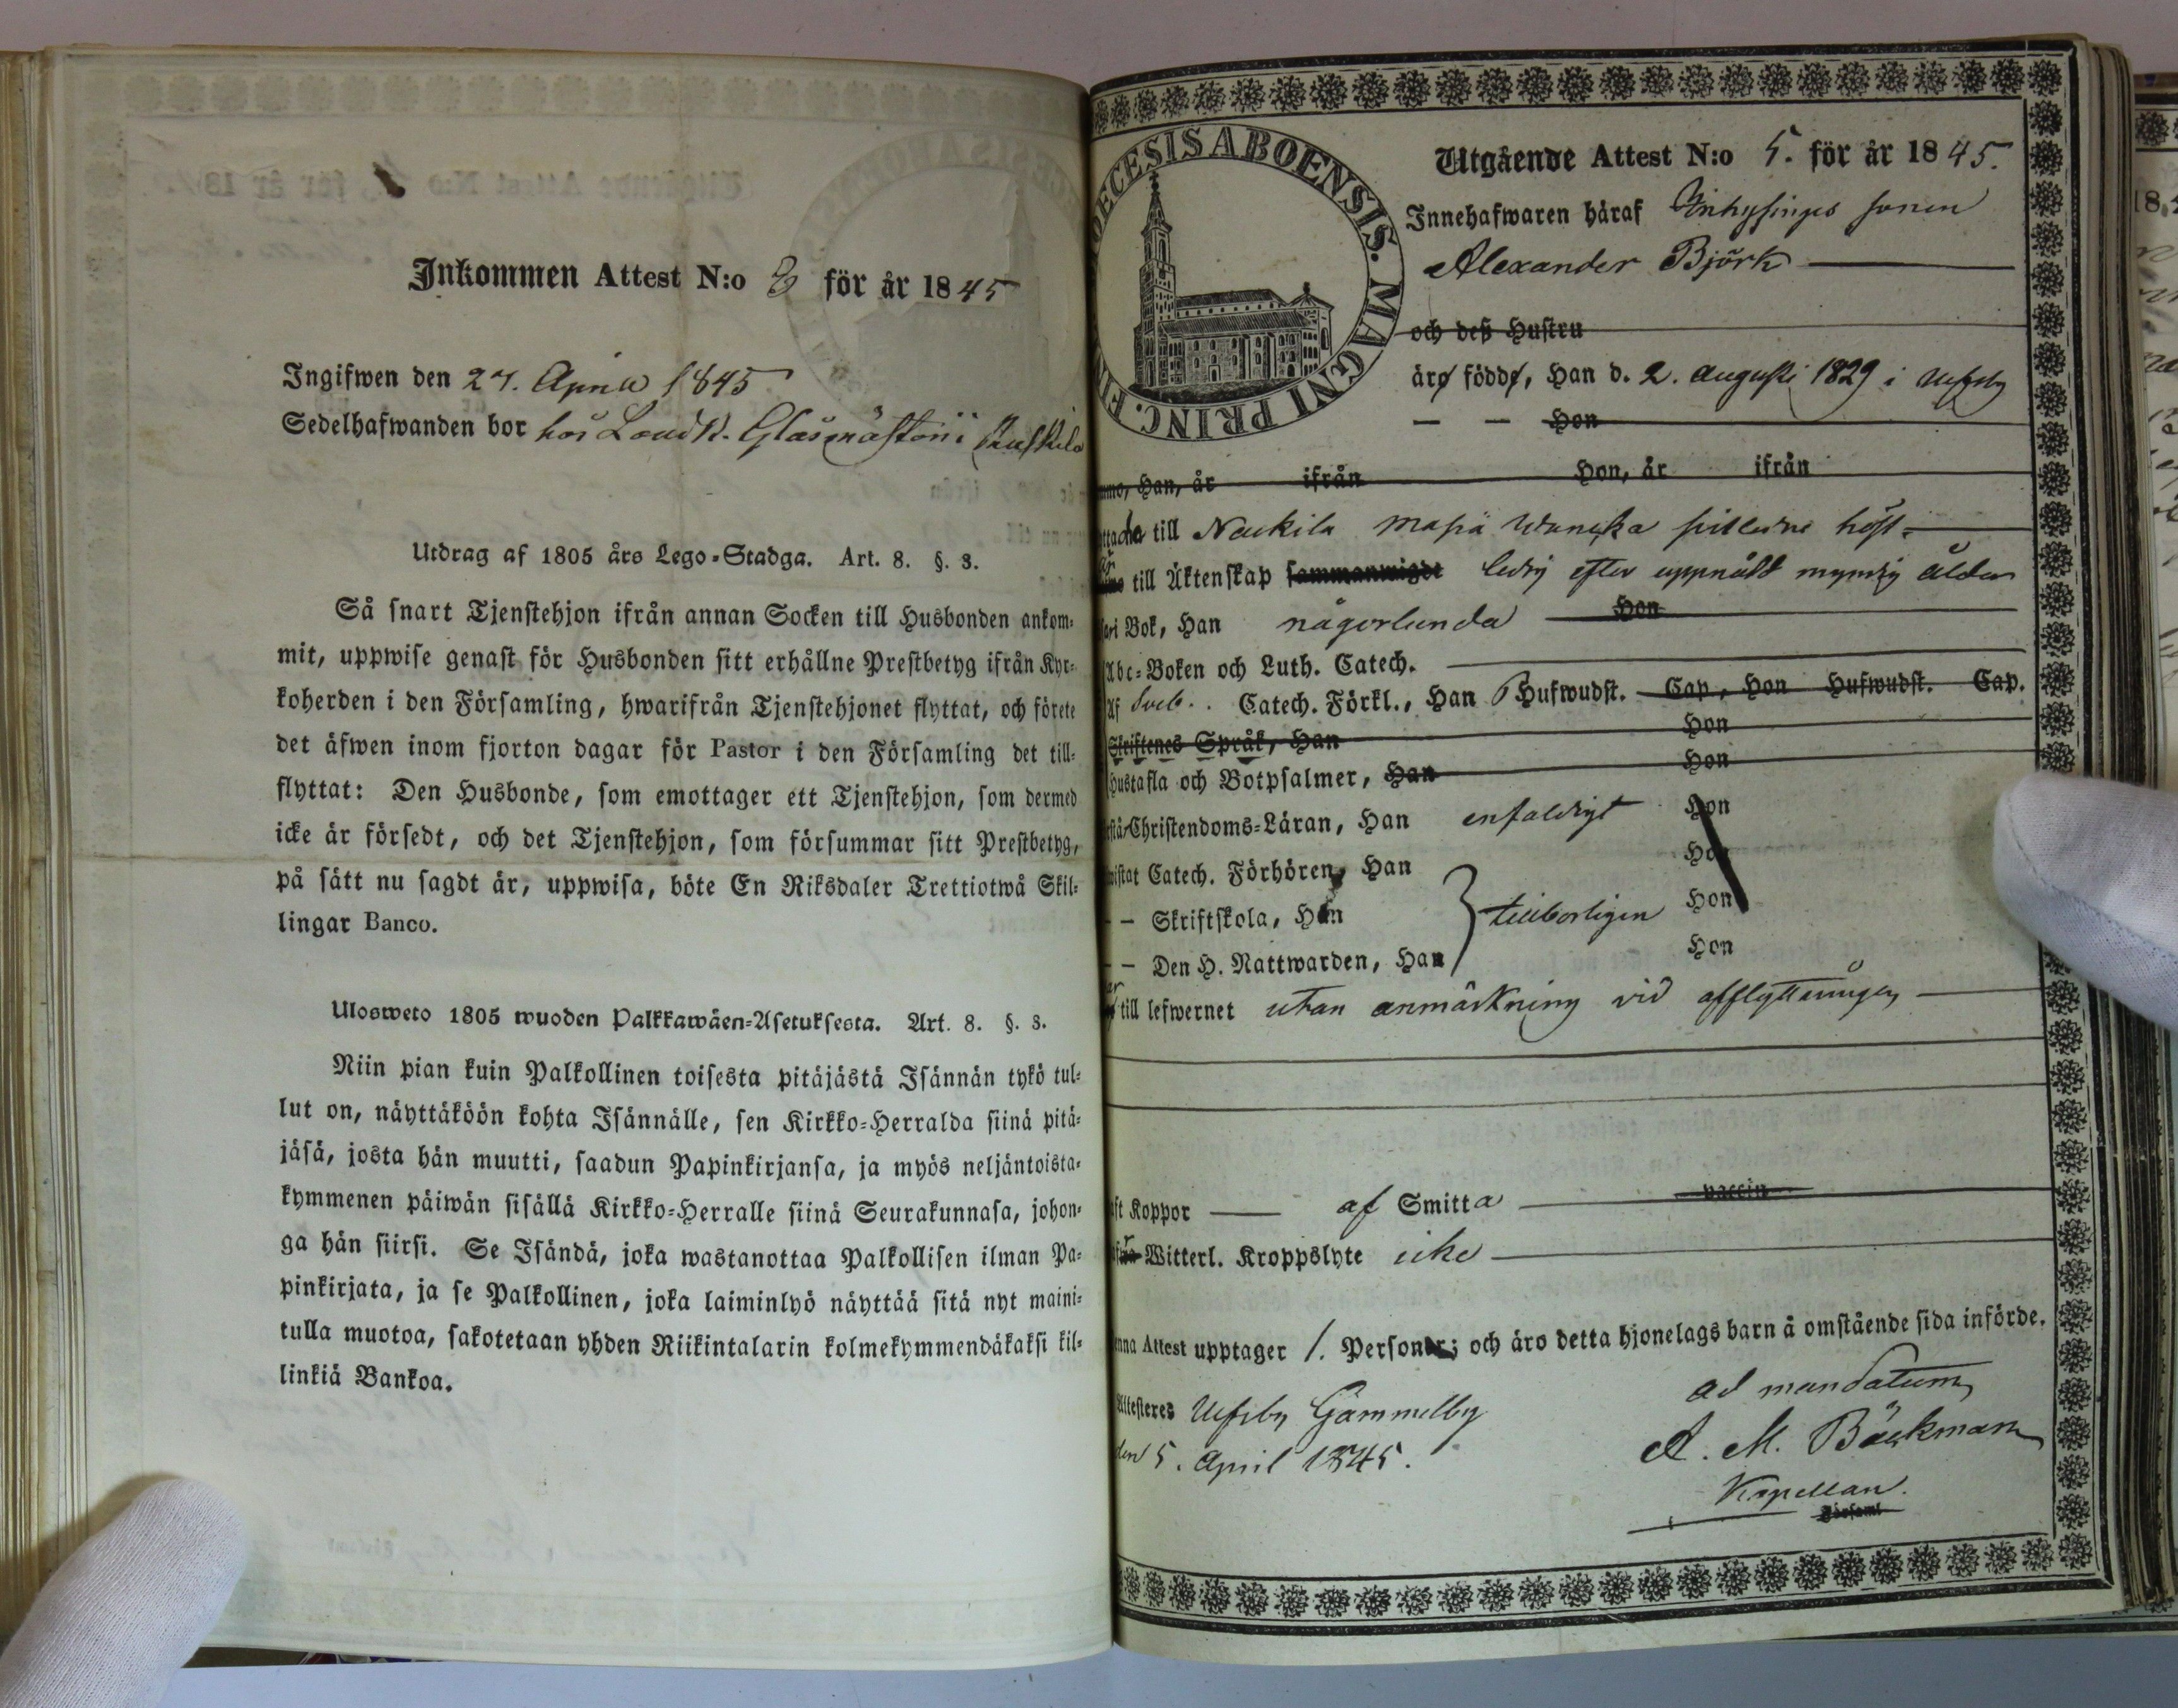 Inkommen Attest N:o 8 för år 1845
Ingifwen den 27. April 1845
Sedelhafwanden bor hos Landk. Glasmästari
Utdrag af 1805 års Lego-Stadga. Art. 8. §. 3.
Så snart Tjenstehjon ifrån annan Socken till Husbonden ankom-
mit, uppwise genast för Husbonden sitt erhållne Prestbetyg ifrån Kyr-
koherden i den Församling, hwarifrån Tjenstehjonet flyttat, och förete
det äfwen inom fjorton dagar för Pastor i den Församling det till-
flyttat: Den Husbonde, som emottager ett Tjenstehjon, som dermed
icke är försedt, och det Tjenstehjon, som försummar sitt Prestbetyg,
på sätt nu sagdt är, uppwisa, böte En Riksdaler Trettiotwå Skil-
lingar Banco.
Ulosweto 1805 wuoden Palkkawäen-Asetuksesta. Art. 8. §. 3.
Niin pian kuin Palkollinen toisesta pitäjästä Isännän tykö tul-
lut on, näyttäköön kohta Isännälle, sen Kirkko-Herralda siinä pitä-
jäsä, josta hän muutti, saadun Papinkirjansa, ja myös neljäntoista-
kymmenen päiwän sisällä Kirkko-Herralle siinä Seurakunnasa, johon-
ga hän siirsi. Se Isändä, joka wastanottaa Palkollisen ilman Pa-
pinkirjata, ja se Palkollinen, joka laiminlyö näyttää sitä nyt maini-
tulla muotoa, sakotetaan yhden Riikintalarin kolmekymmendäkaksi kil-
linkiä Bankoa.
DIOECESIS ABOENSIS. MAGNI PRINC. FIN
Utgående Attest N:o 5. för år 1845.
Innehafwaren häraf Inhysinges sonen
Alexander Björk
och deß Hustru
äro födde, Han d. 2. Augusti 1829 i Ulfsby
— — Hon
Han, år ifrån Hon, år ifrån
till Nakkila
till Äktenskap sammanwigde ledig efter uppnådd myndig ålder
Bok, Han någorlunda Hon
Abc-Boken och Luth. Catech.
Af Sveb. Catech. Förkl., Han Hufwudst. Cap, Hon Hufwudst. Cap.
Skriftenes Språk, Han Hon
Hustafla och Botpsalmer, Han Hon
Christendoms-Läran, Han enfaldigt Hon
Catech. Förhören, Han Hon
— Skriftskola, Han tillbörligen Hon
— Den H. Nattwarden, Han Hon
till lefwernet utan anmärkning vid afflyttningen
Koppor — af Smitta vaccin
Witterl. Kroppslyte icke
Attest upptager 1. Personer; och äro detta hjonelags barn å omstående sida införde.
Attesteres Ulfsby Gammelby
den 5. April 1845.
ad mandatum
A. M. Bäckman
Kapellan.
Församl